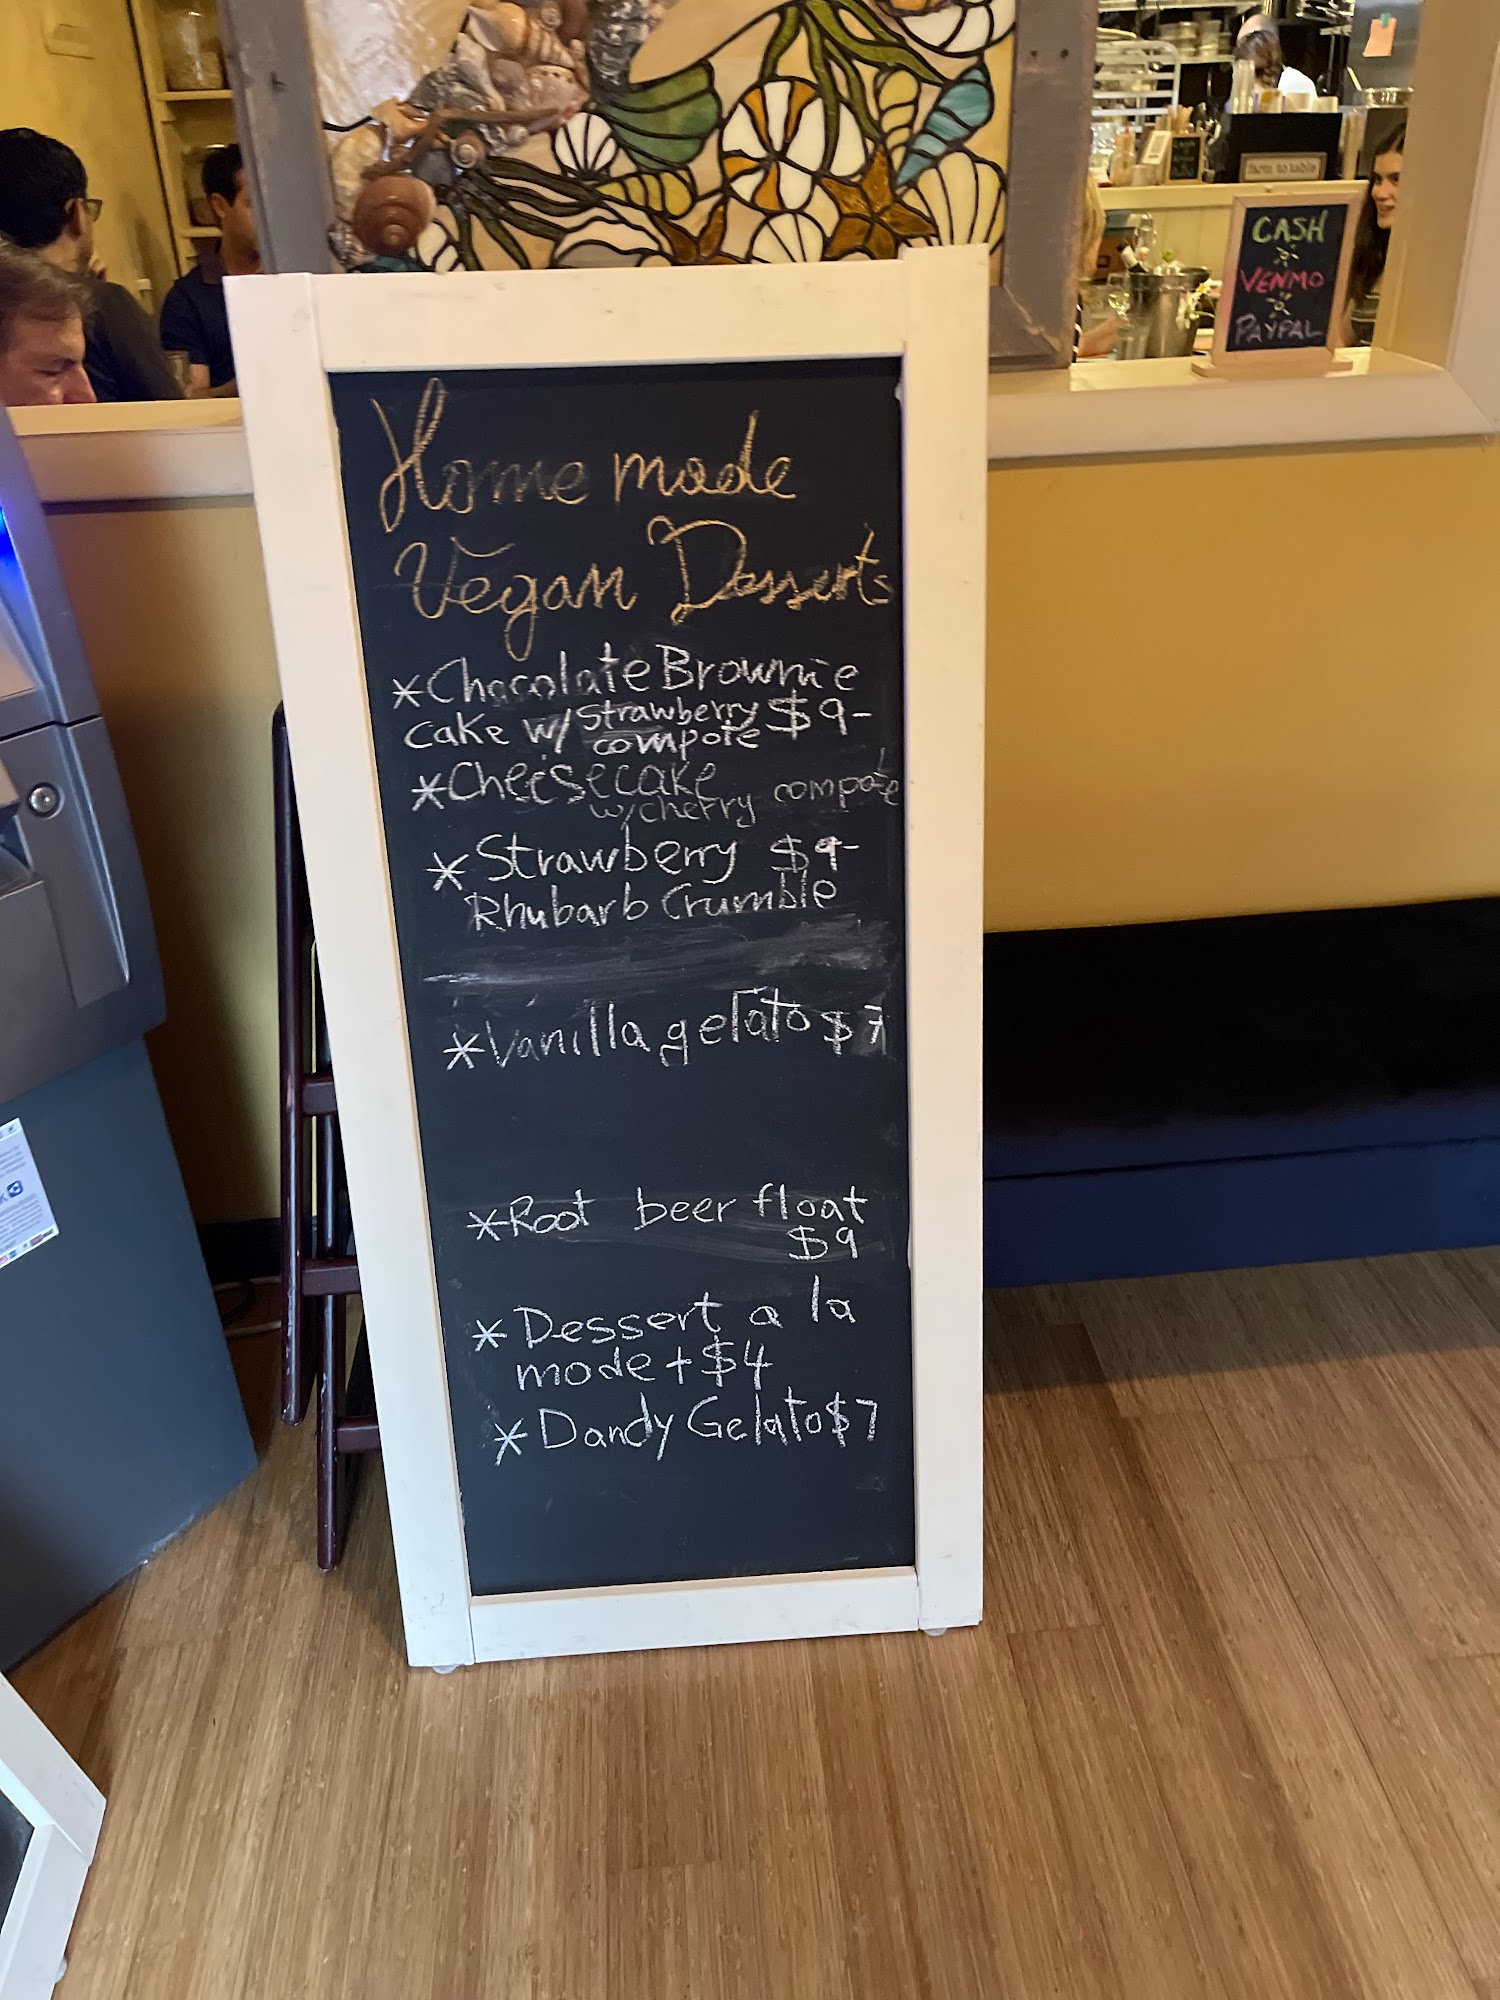 Home made
Vegan Desserts
*Chocolate Brownie
cake w/ strawberry $9-
compote
*Cheesecake
w/cherry compote
*Strawberry $9-
Rhubarb Crumble
*Vanilla gelato $7
*Root beer float
$9
*Dessert a la
mode + $4
*Dandy Gelato $7
CASH
VENMO
PAYPAL
farm to table